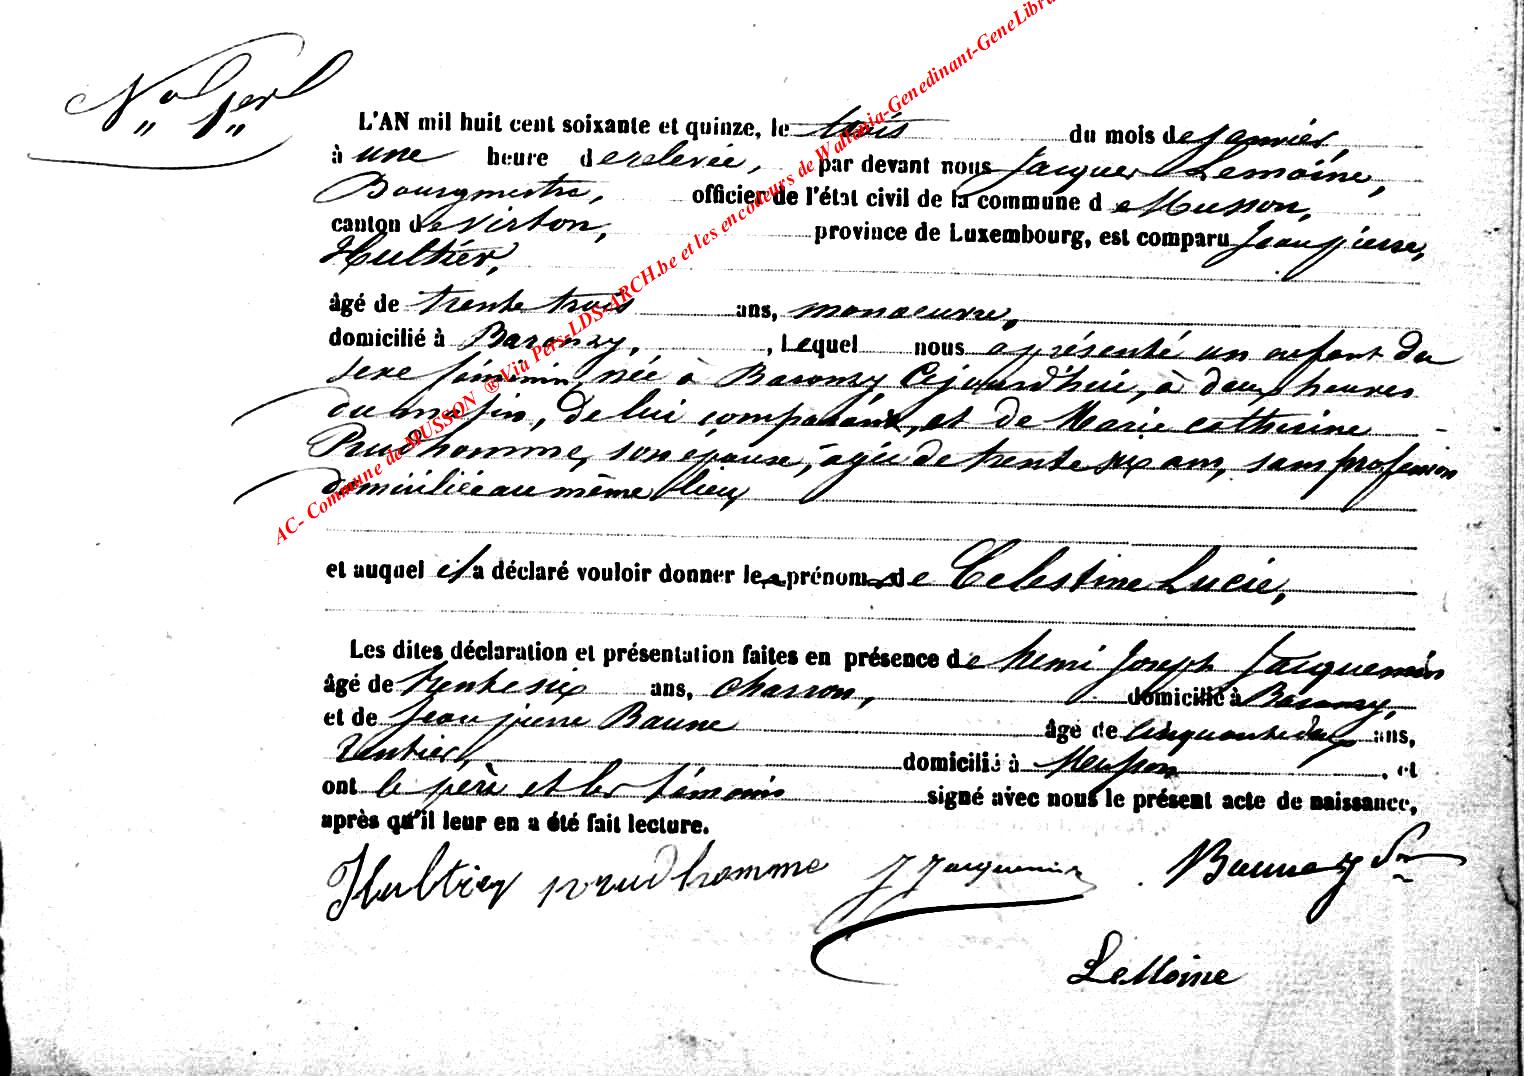 N° 1er
L'AN mil huit cent soixante et quinze, le trois du mois de Janvier,
à une heure de relevée, par devant nous Jacques Lemoine,
Bourgmestre, officier de l'état civil de la commune de Musson,
canton de Virton, province de Luxembourg, est comparu Jean pierre,
Hultier,
âgé de trente trois ans, manoeuvre,
domicilié à Baranzy, , Lequel nous a présenté un enfant du
sexe féminin, née à Baranzy Cejourd'hui, à deux heures
du matin, de lui comparant, et de Marie catherine
Prudhomme, son épouse, agée de trente six ans, sans profession
domiciliée au même lieu,
et auquel il a déclaré vouloir donner les prénoms de Celestine Lucie,
Les dites déclaration et présentation faites en présence de Henri Joseph Jacquemin
âgé de trente six ans, charron, domicilié à Baranzy,
et de Jean pierre Baune âgé de cinquante deux ans,
rentier, domicilié à Musson , et
ont le père et les témoins signé avec nous le présent acte de naissance,
après qu'il leur en a été fait lecture.
Hultier prudhomme J Jacquemin Baune
LeMoine
AC- Commune de MUSSON ®Via Pers-LDS-ARCH.be et les encodeurs de Wallonia-Genedinant-GeneLibra